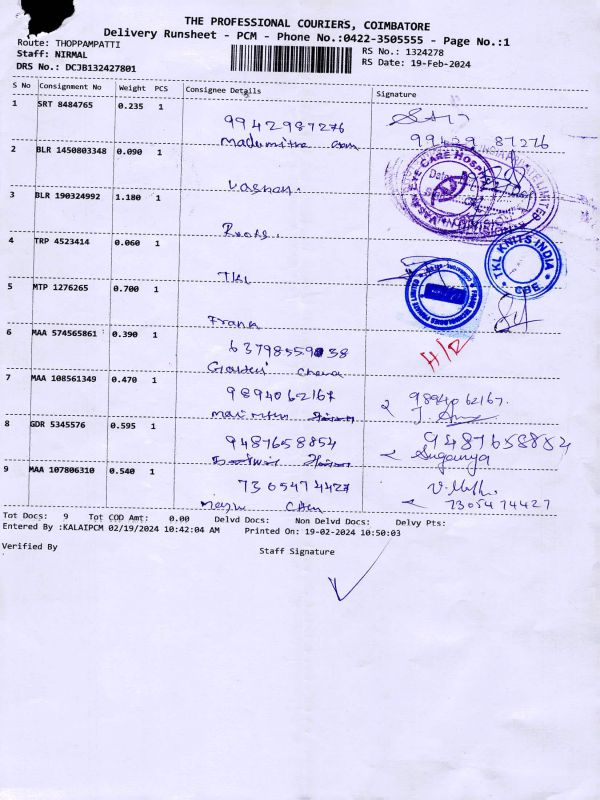 THE PROFESSIONAL COURIERS, COIMBATORE
Delivery Runsheet - PCM - Phone No.:0422-3505555 - Page No.:1
Route: THOPPAMPATTI
RS No.: 1324278
Staff: NIRMAL
RS Date: 19-Feb-2024
DRS No.: DCJB132427801
S No Consignment No Weight PCS Consignee Details Signature
1 SRT 8484765 0.235 1
9942987276
99429 87276
2 BLR 1450803348 0.090 1
EYE CARE HOSPITAL
Vasan
3 BLR 190324992 1.180 1
TKL KNITS INDIA
CBE
4 TRP 4523414 0.060 1
TKL
5 MTP 1276265 0.700 1
Frank
6 MAA 574565861 0.390 1
H/R
7 MAA 108561349 0.470 1
9894062167
98940 62167.
8 GDR 5345576 0.595 1
9487658854
9487658854
Suganya
9 MAA 107806310 0.540 1
7305474427
7305474427
Tot Docs: 9 Tot COD Amt: 0.00 Delvd Docs: Non Delvd Docs: Delvy Pts:
Entered By :KALAIPCM 02/19/2024 10:42:04 AM Printed On: 19-02-2024 10:50:03
Verified By
Staff Signature